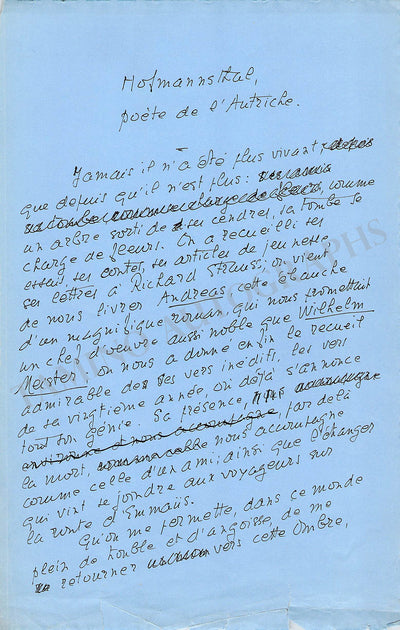 Hofmannsthal,
poète de l'Autriche.
Jamais il n'a été plus vivant depuis
que depuis qu'il n'est plus :
comme
un arbre sorti de ses cendres, sa tombe se
charge de fleurs. On a recueilli ses
essais, ses contes, ses articles de jeunesse,
ses lettres à Richard Strauss ; on vient
de nous livrer Andreas cette ébauche
d'un magnifique roman, qui nous promettait
un chef d'oeuvre aussi noble que Wilhelm
Meister ; on nous a donné enfin le recueil
admirable de ses vers inédits, les vers
de sa vingtième année, où déjà s'annonce
tout son génie. Sa présence,
par delà
la mort, nous accompagne
comme celle d'un ami ; ainsi que l'étranger
qui vint se joindre aux voyageurs sur
la route d'Emmaüs.
Qu'on me permette, dans ce monde
plein de trouble et d'angoisse, de me
retourner vers cette Ombre,